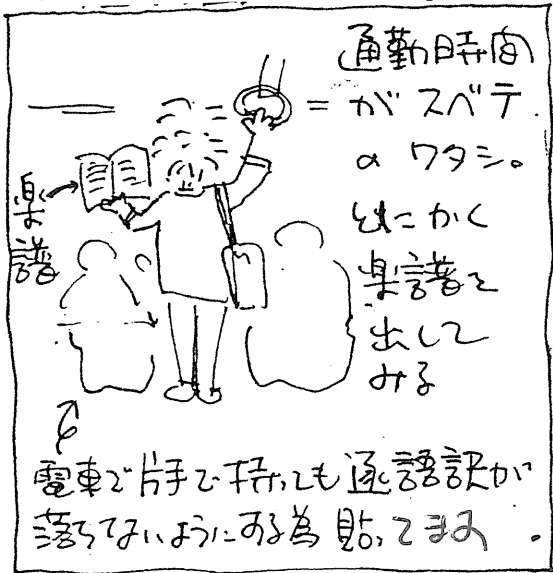 通勤時間
がスベテ
のワタシ。
とにかく
楽譜を
出して
みる
楽譜
電車で片手で持っても逐語訳が
落ちてないようにする為貼ってます。